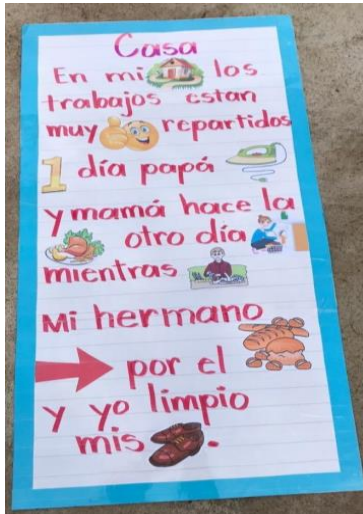 Casa
En mi los
trabajos estan
muy repartidos
1 día papá
y mamá hace la
otro día
mientras
Mi hermano
por el
y yo limpio
mis .